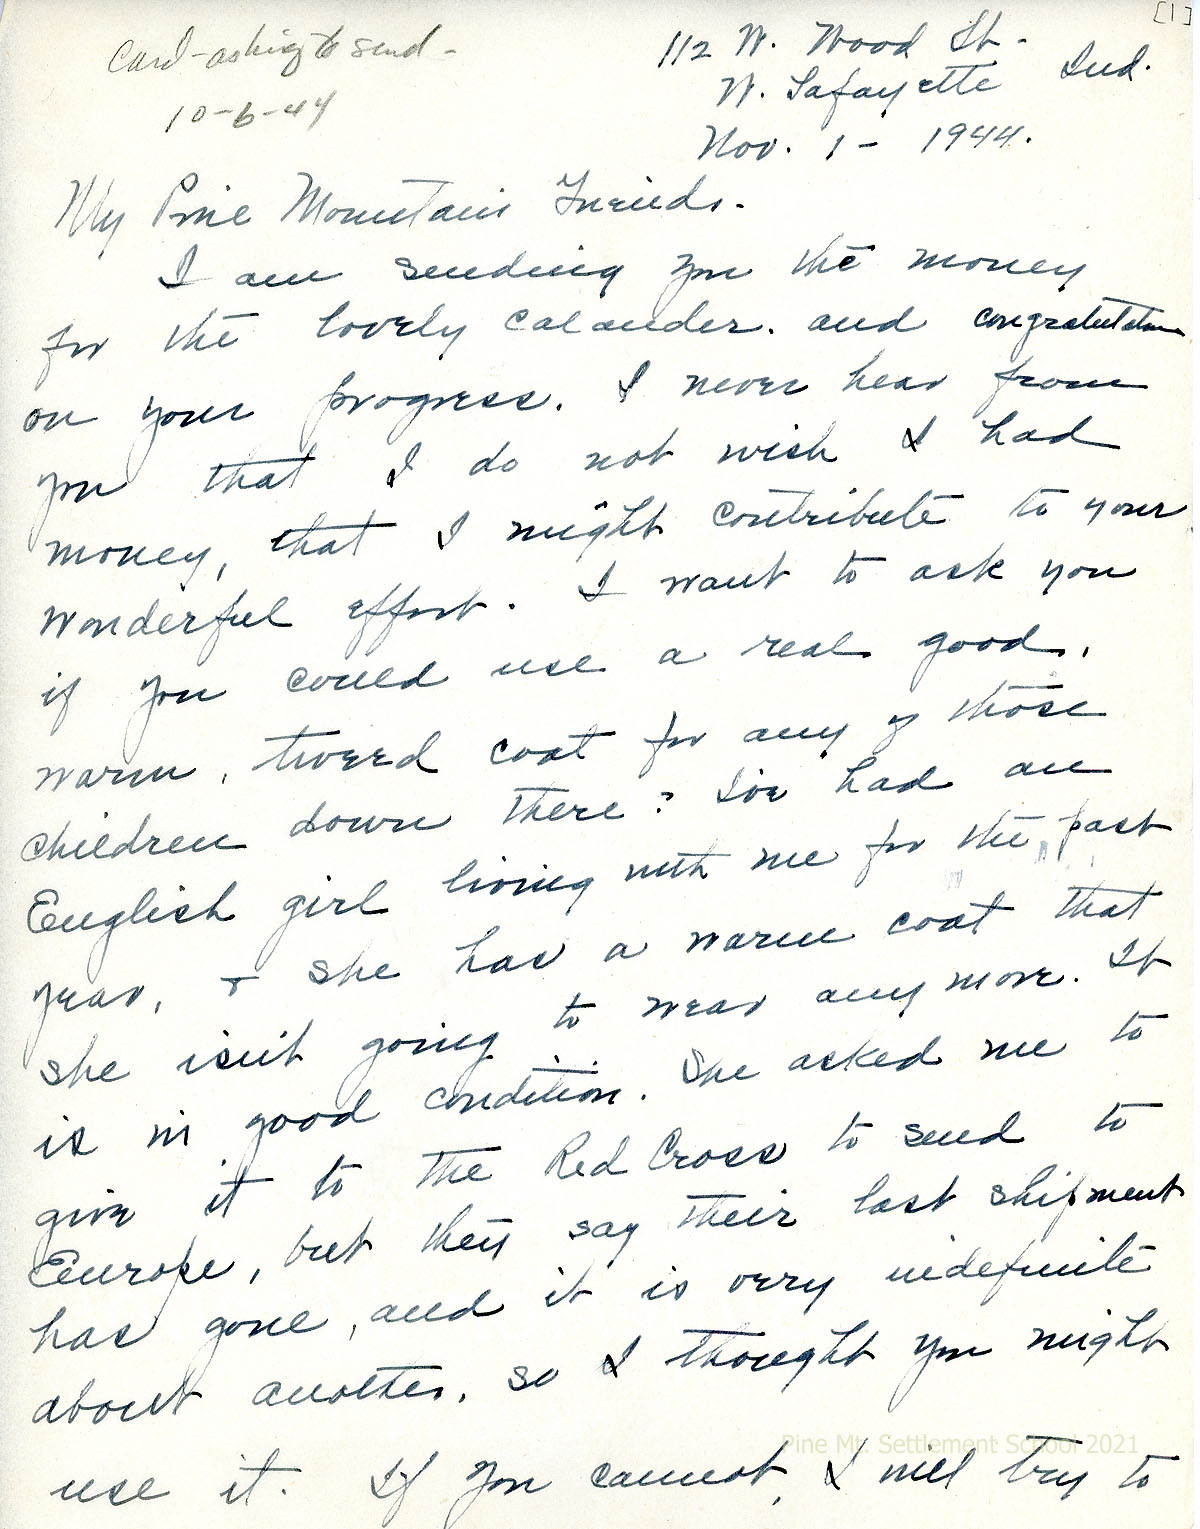 [1]
Card-asking to send-
10-6-44
112 W. Wood St.
W. Lafayette Ind.
Nov. 1- 1944.
My Pine Mountain Friends-
I am sending you the money
for the lovely calander. and congratulations
on your progress. I never hear from
you that I do not wish I had
money, that I might contribute to your
wonderful effort. I want to ask you
if you could use a real good,
warm, tweed coat for any of those
children down there? I've had an
English girl living with me for the past
year, + she has a warm coat that
she isn't going to wear any more. It
is in good condition. She asked me to
give it to the Red Cross to send to
Europe, but they say their last shipment
has gone, and it is very indefinite
about another, so I thought you might
use it. If you cannot, I will try to
Pine Mt. Settlement School 2021